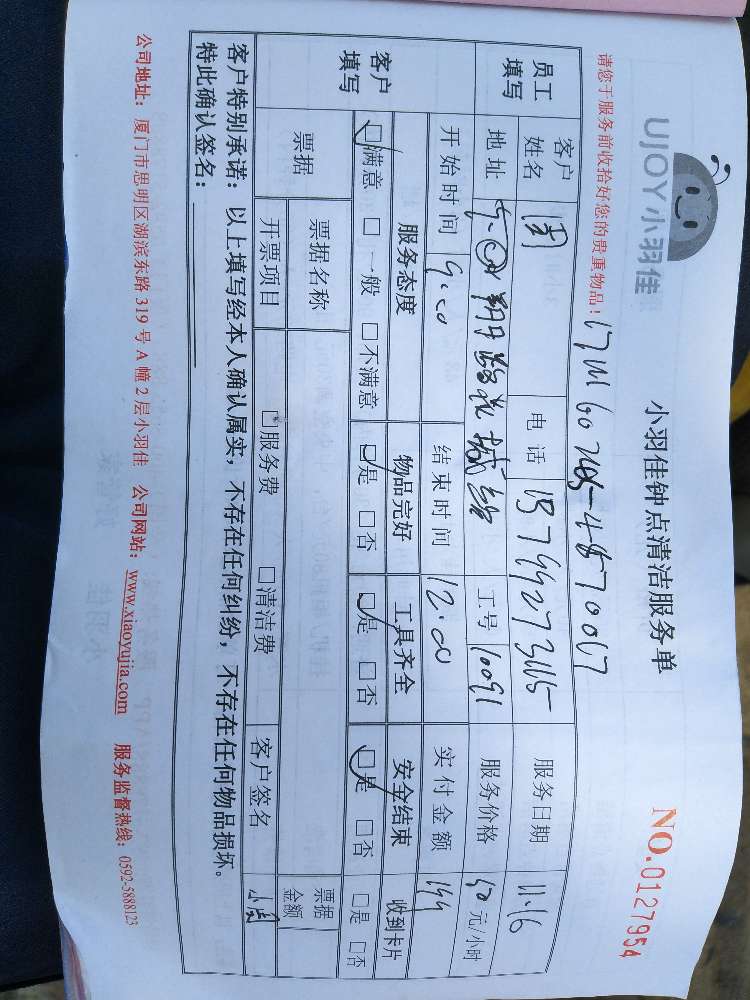 UJOY小羽佳
小羽佳钟点清洁服务单
NO.0127954
请您于服务前收拾好您的贵重物品！
员工填写
客户姓名 周 电话 服务日期 11.16
地址 工号 10091 服务价格 50元/小时
开始时间 9:00 结束时间 12:00 实付金额 144
客户填写
服务态度 物品完好 工具齐全 安全结束 收到卡片
☑满意 □一般 □不满意 ☑是 □否 ☑是 □否 ☑是 □否 □是 □否
票据 票据名称 票据金额
开票项目 □服务费 □清洁费 客户签名
客户特别承诺：以上填写经本人确认属实，不存在任何纠纷，不存在任何物品损坏。
特此确认签名：
公司地址：厦门市思明区湖滨东路 319 号 A 幢 2 层小羽佳 公司网站：www.xiaoyujia.com 服务监督热线：0592-5888123